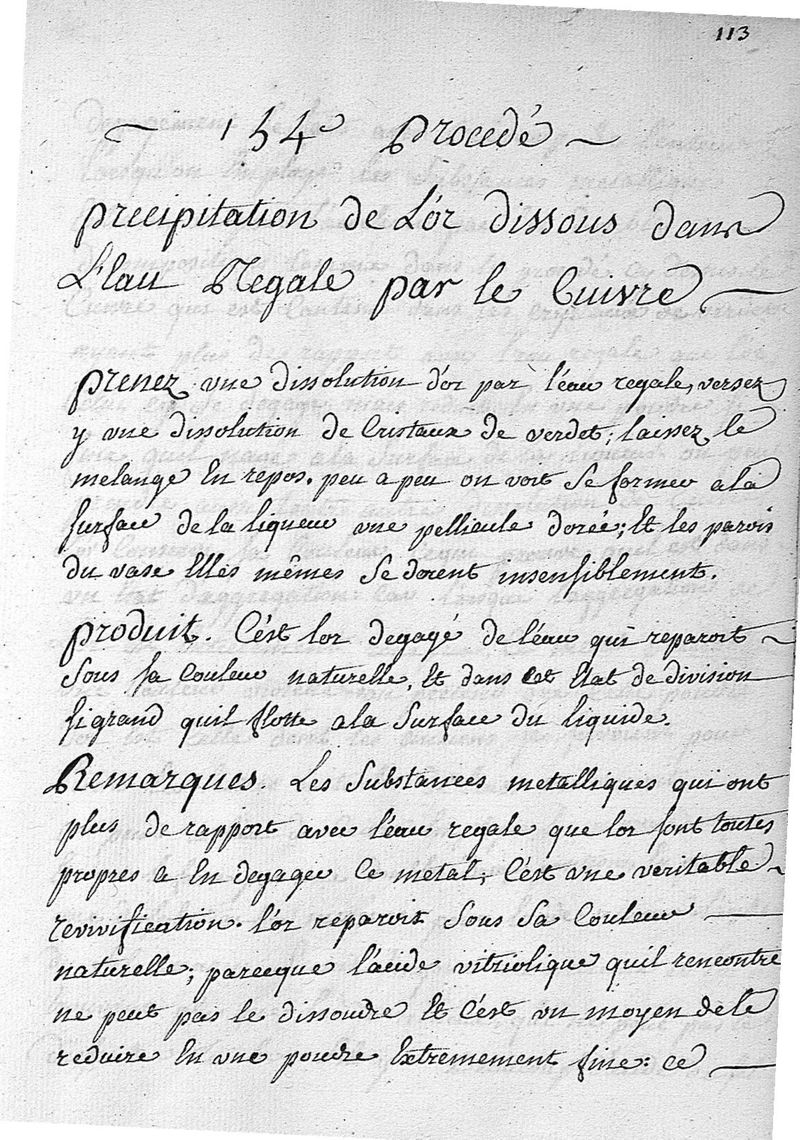 113
154e procedé
precipitation de L'or dissous dans
L'eau Regale par le Cuivre
prenez une dissolution d'or par l'eau regale, versez
y une dissolution de Cristaux de verdet; laissez le
melange En repos. peu a peu on voit se former a la
surface de la liqueur une pellicule dorée; Et les parois
du vase Elles mêmes se dorent insensiblement.
produit. C'est lor degagé de l'eau qui reparoit
sous sa Couleur naturelle, Et dans cet Etat de division
si grand quil flotte a la surface du liquide.
Remarques. Les substances metalliques qui ont
plus de rapport avec l'eau regale que lor sont toutes
propres a En degager Ce metal; C'est une veritable
revivification. l'or reparoit sous sa Couleur
naturelle; parceque l'acide vitriolique quil rencontre
ne peut pas le dissoudre Et C'est un moyen de le
reduire En une poudre Extremement fine: ce